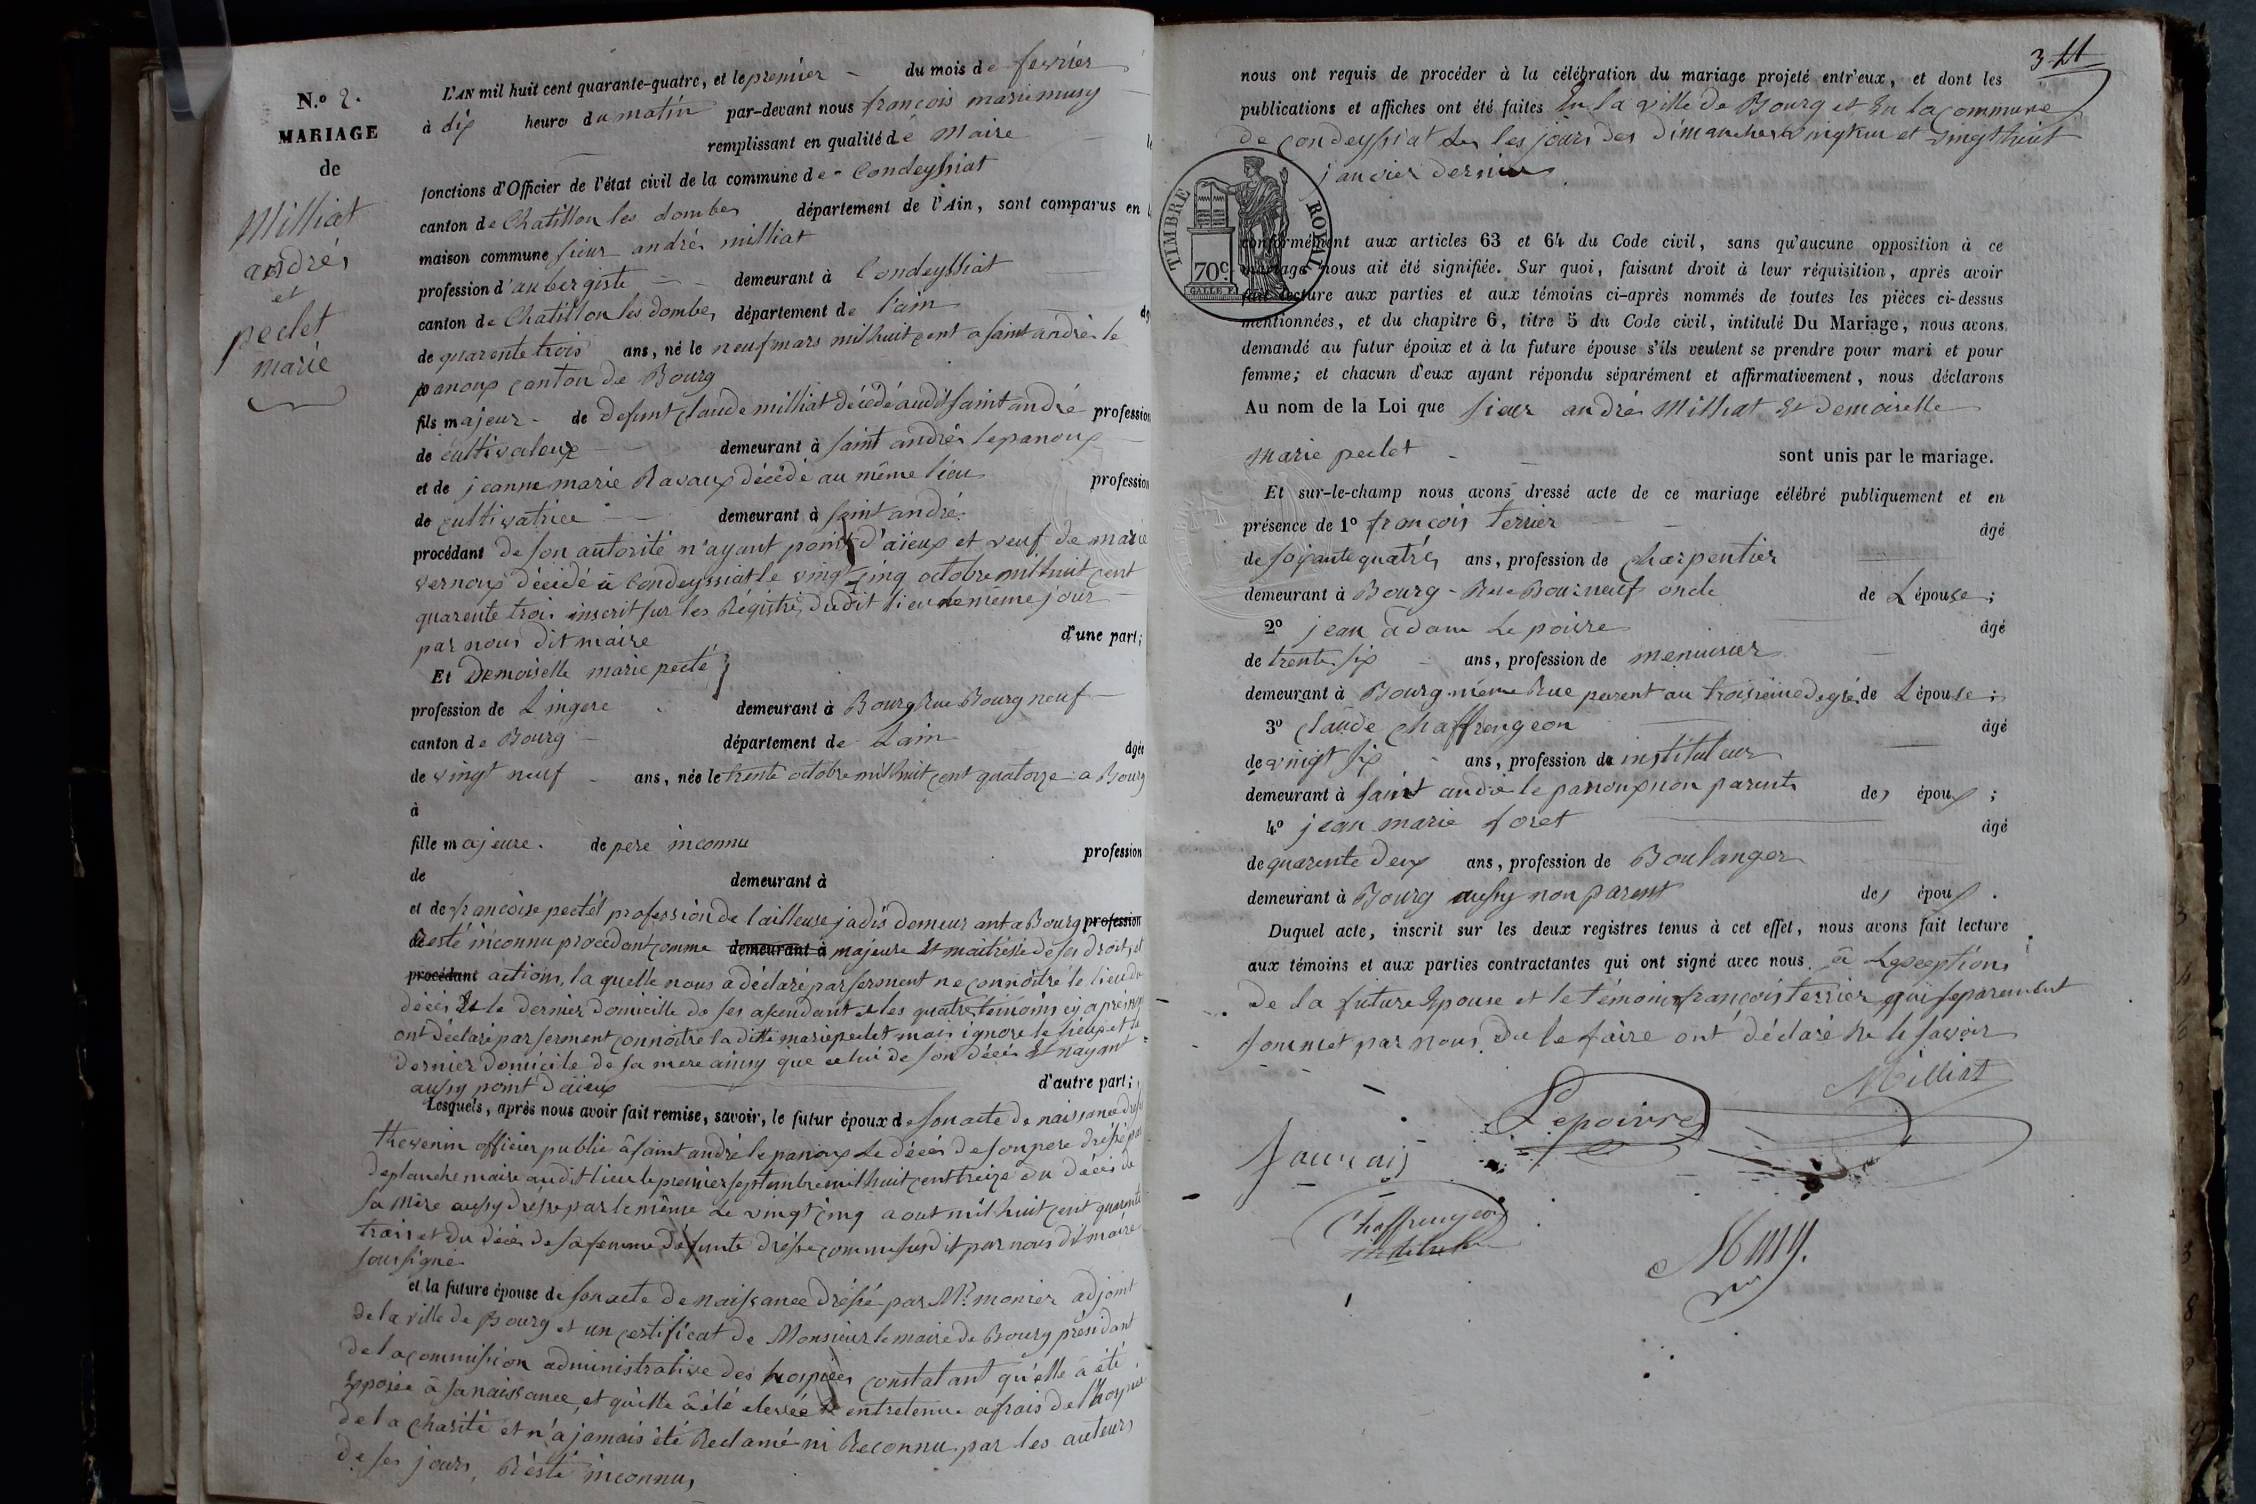 N.o 2.
MARIAGE
de
Milliat
andré
et
peclet
marie
L'AN mil huit cent quarante-quatre, et le premier du mois de fevrier
à dix heures du matin par-devant nous françois marie musy
remplissant en qualité de Maire
fonctions d'Officier de l'état civil de la commune de Condeyssiat
canton de Chatillon les dombes département de l'Ain, sont comparus en
maison commune sieur andré milliat
profession d'aubergiste demeurant à Condeyssiat
canton de Chatillon les dombes département de l'ain
de quarente trois ans, né le neuf mars mil huit cent a saint andré le
panoux canton de Bourg
fils majeur de defunt claude milliat décédé audit saint andré profession
de cultivateur demeurant à saint andré le panoux
et de jeanne marie Ravaux décédé au même lieu profession
de cultivatrice demeurant à saint andré
procédant de son autorité n'ayant point d'aïeux et veuf de marie
vernoux décédé à Condeyssiat le vingt cinq octobre mil huit cent
quarente trois inscrit sur les Régistres dudit lieu le meme jour
par nous dit maire d'une part;
Et Demoiselle marie pecté
profession de Lingere demeurant à Bourg Rue Bourg neuf
canton de Bourg département de Lain
âgée
de vingt neuf ans, née le trente octobre mil huit cent quatorze a Bourg
à
fille majeure. de pere inconnu profession
de demeurant à
et de françoise pectet profession de tailleuse jadis demeurant a Bourg profession
Resté inconnu procedant comme demeurant à majeure et maitresse de ses droits et
procédant actions, la quelle nous a déclaré par serment ne connoitre le lieu du
décés et le dernier domicille de ses asendant et les quatre témoins cy apres
ont déclaré par serment connoitre la ditte marie peclet mais ignore le lieux et le
dernier domicile de sa mere ainsy que celui de son décés et nayant
aussy point d'aïeux d'autre part;
Lesquels, après nous avoir fait remise, savoir, le futur époux de son acte de naissance
thevenin officier public à saint andré le panoux de décés de son pere dréssé par
deplanche maire audit lieu le premier septembre mil huit cent treize du décés de
sa mère aussy dréssé par le même le vingt cinq aout mil huit cent quarente
trois et du décés de sa femme défunte dréssé comme susdit par nous dit maire
soussigné
et la future épouse de son acte de naissance dréssé par Mr monier adjoint
de la ville de Bourg et un certificat de Monsieur le maire de Bourg présidant
de la commission administrative des hospices constatant qu'elle a été
Exposée à sa naissance, et qu'elle à été elevée et entretenue a frais de l'hospice
de la charité et n'a jamais été Reclamé ni Reconnu par les auteurs
de ses jours, Résté inconnus
3 11
nous ont requis de procéder à la célébration du mariage projeté entr'eux, et dont les
publications et affiches ont été faites En la ville de Bourg et En la commune
de Condeyssiat les jours des dimanches vingt un et vingt huit
janvier dernier
TIMBRE ROYAL
70c.
conformément aux articles 63 et 64 du Code civil, sans qu'aucune opposition à ce
mariage nous ait été signifiée. Sur quoi, faisant droit à leur réquisition, après avoir
fait lecture aux parties et aux témoins ci-après nommés de toutes les pièces ci-dessus
mentionnées, et du chapitre 6, titre 5 du Code civil, intitulé Du Mariage, nous avons
demandé au futur époux et à la future épouse s'ils veulent se prendre pour mari et pour
femme; et chacun d'eux ayant répondu séparément et affirmativement, nous déclarons
Au nom de la Loi que sieur andré Milliat Et demoiselle
marie peclet sont unis par le mariage.
Et sur-le-champ nous avons dressé acte de ce mariage célébré publiquement et en
présence de 1o françois terrier âgé
de soixante quatre ans, profession de charpentier
demeurant à Bourg Rue Bourneuf oncle de Lépouse;
2o jean adam Lepoivre âgé
de trente six ans, profession de menuisier
demeurant à Bourg même Rue parent au troisieme degré de Lépouse;
3o claude chaffrengeon âgé
de vingt six ans, profession de instituteur
demeurant à saint andré le panoux non parents des époux;
4o jean marie foret âgé
de quarente deux ans, profession de Boulanger
demeurant à Bourg aussy non parent des époux.
Duquel acte, inscrit sur les deux registres tenus à cet effet, nous avons fait lecture
aux témoins et aux parties contractantes qui ont signé avec nous à Lexception
de la future Epouse et le témoin françois terrier qui separement
sommet par nous de le faire ont déclaré ne le savoir
Milliat
Lepoivre
Chaffrengeon
Musy.